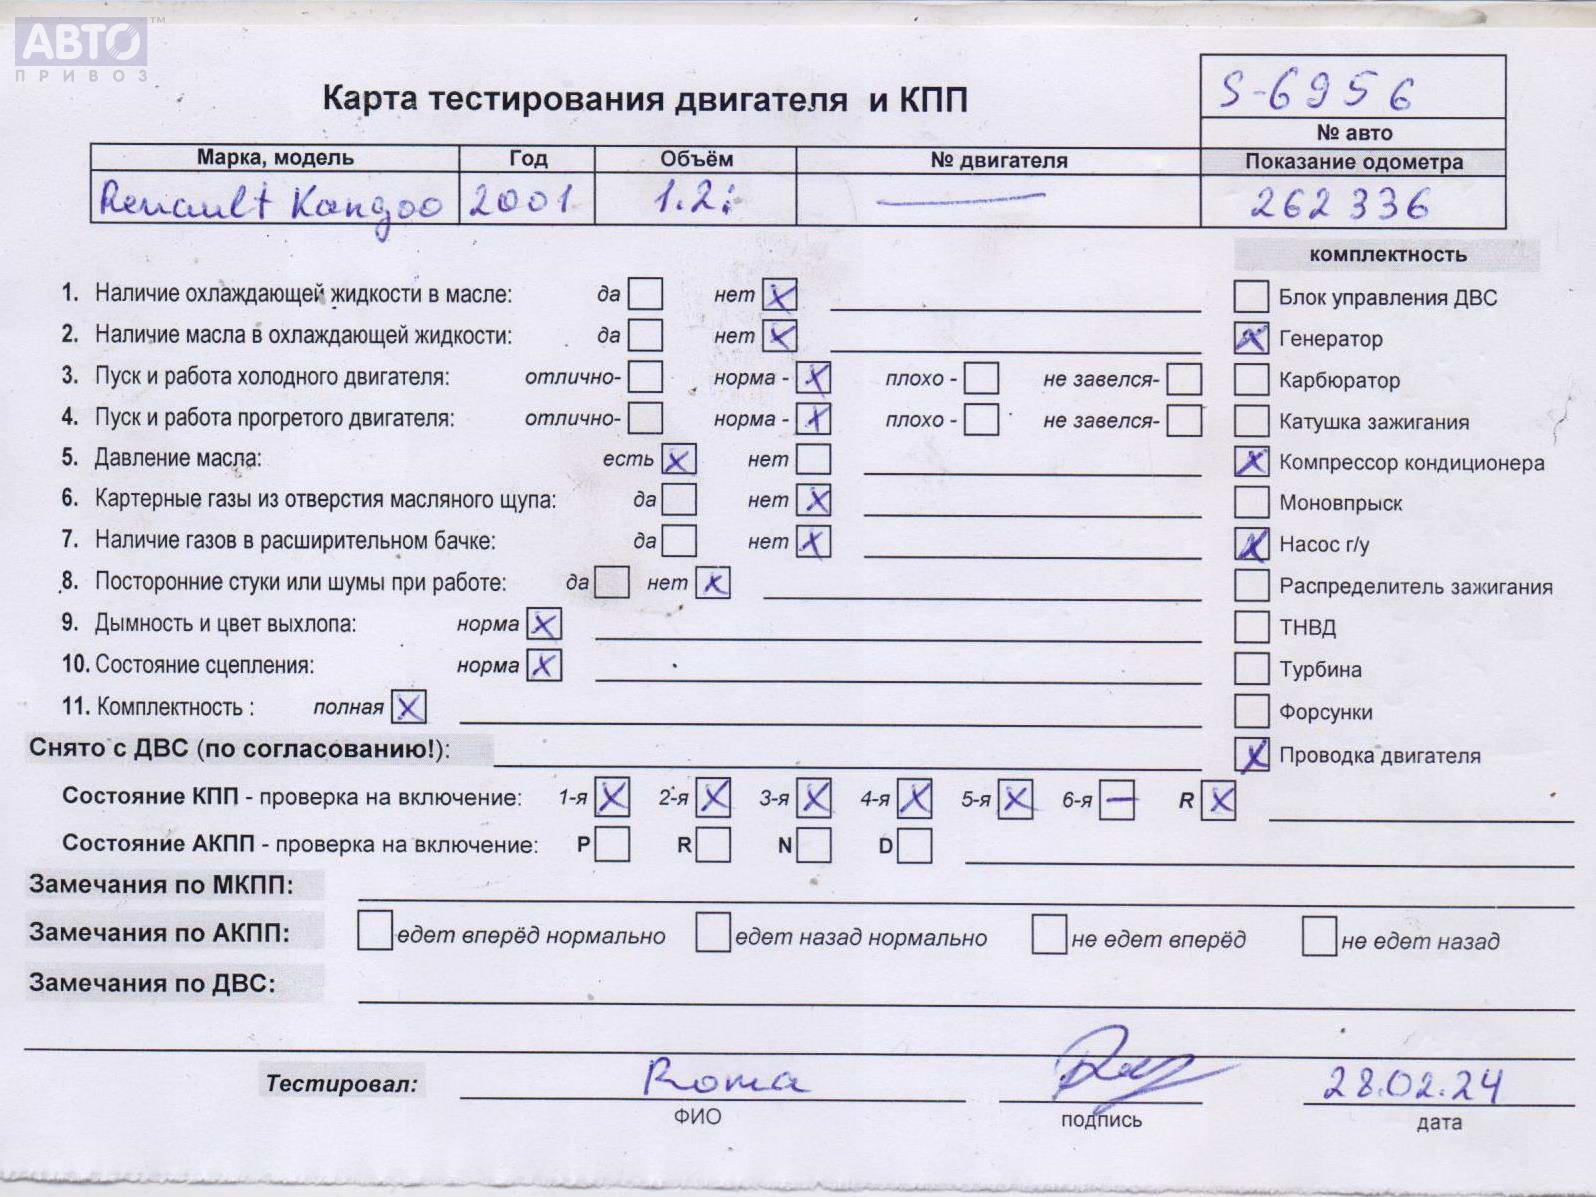 АВТО™
ПРИВОЗ
S-6956
Карта тестирования двигателя и КПП
№ авто
Марка, модель Год Объём № двигателя Показание одометра
Renault Kangoo 2001 1.2i — 262 336
комплектность
1. Наличие охлаждающей жидкости в масле: да нет X Блок управления ДВС
2. Наличие масла в охлаждающей жидкости: да нет X X Генератор
3. Пуск и работа холодного двигателя: отлично- норма - X плохо - не завелся- Карбюратор
4. Пуск и работа прогретого двигателя: отлично- норма - X плохо - не завелся- Катушка зажигания
5. Давление масла: есть X нет X Компрессор кондиционера
6. Картерные газы из отверстия масляного щупа: да нет X Моновпрыск
7. Наличие газов в расширительном бачке: да нет X X Насос г/у
8. Посторонние стуки или шумы при работе: да нет X Распределитель зажигания
9. Дымность и цвет выхлопа: норма X ТНВД
10. Состояние сцепления: норма X Турбина
11. Комплектность : полная X Форсунки
Снято с ДВС (по согласованию!): X Проводка двигателя
Состояние КПП - проверка на включение: 1-я X 2-я X 3-я X 4-я X 5-я X 6-я — R X
Состояние АКПП - проверка на включение: P R N D
Замечания по МКПП:
Замечания по АКПП: едет вперёд нормально едет назад нормально не едет вперёд не едет назад
Замечания по ДВС:
Тестировал: Roma 28.02.24
ФИО подпись дата